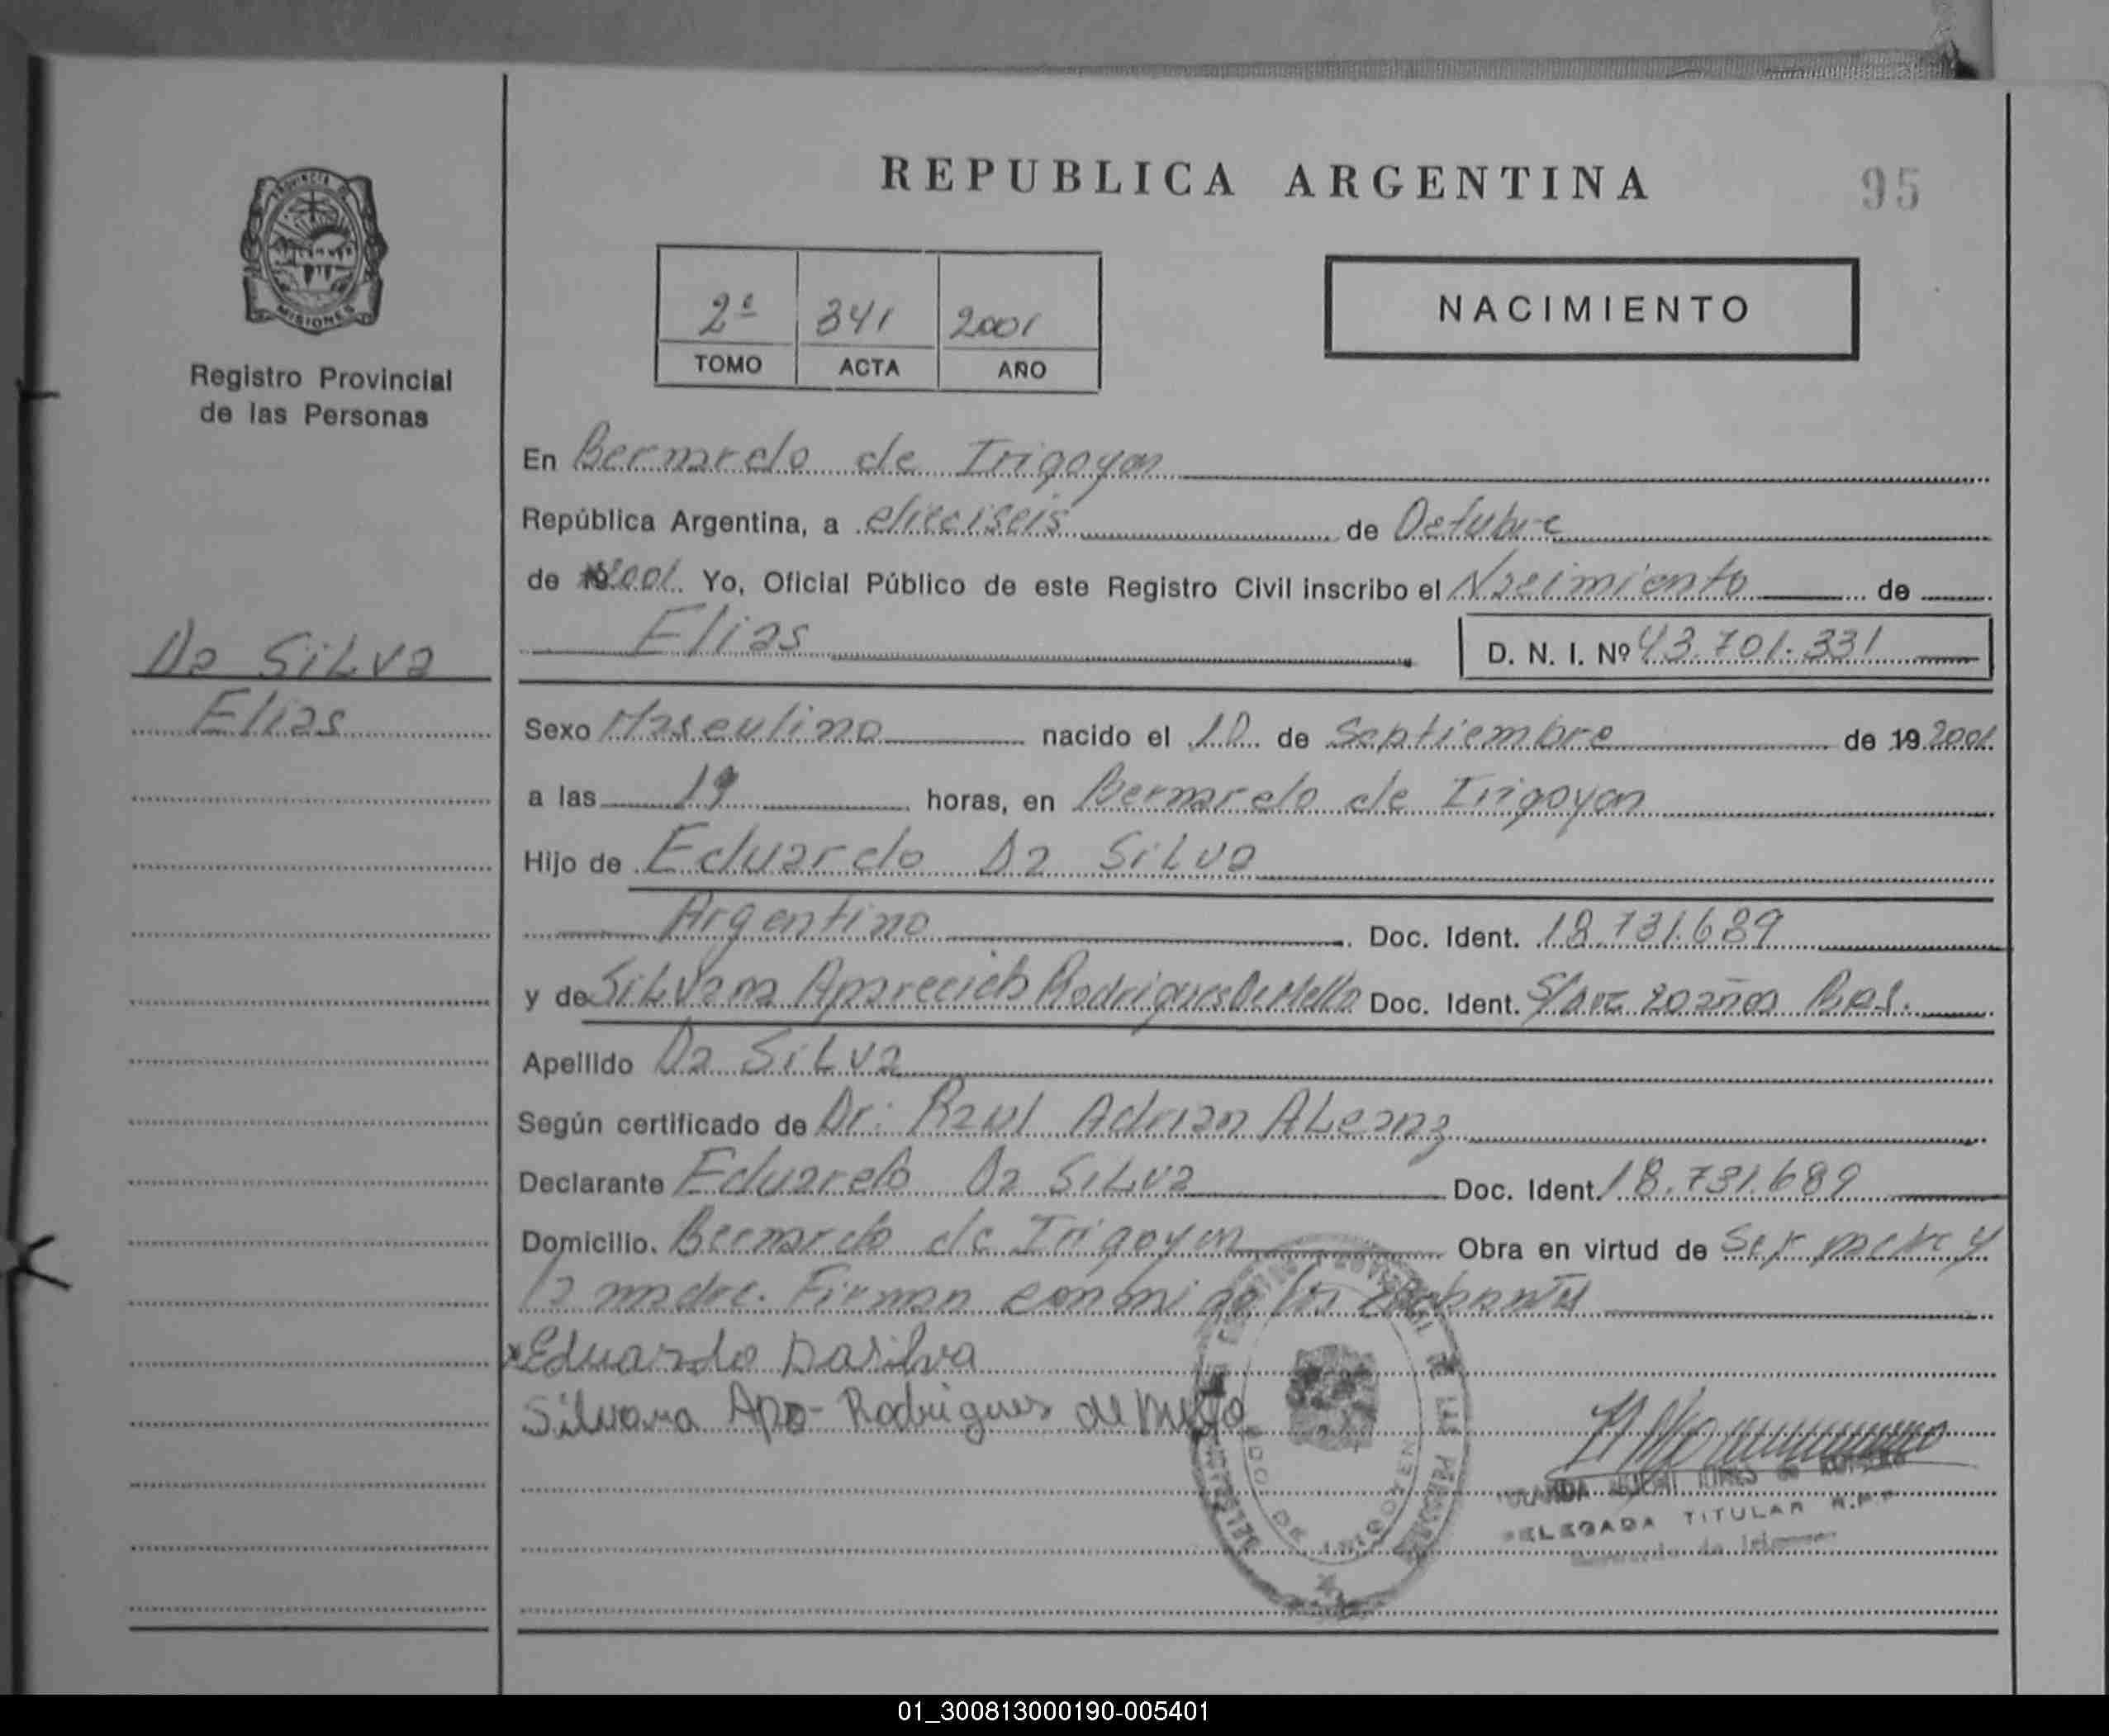 REPUBLICA ARGENTINA
95
PROVINCIA D
MISIONES
Registro Provincial
de las Personas
2º 341 2001
TOMO ACTA AÑO
NACIMIENTO
En Bernardo de Irigoyen
República Argentina, a dieciseis de Octubre
de 2001. Yo, Oficial Público de este Registro Civil inscribo el Nacimiento de
Elias D. N. I. Nº 43.701.331
Da SiLva
Elias
Sexo Masculino nacido el 10 de Septiembre de 19 2001
a las 19 horas, en Bernardo de Irigoyen
Hijo de Eduardo Da SiLva
Argentino Doc. Ident. 18.731.689
y de SiLvana Aparecida Rodrigues De Mello Doc. Ident. 20 años Bras.
Apellido Da SiLva
Según certificado de Dr: Raul Adrian ALcanz
Declarante Eduardo Da SiLva Doc. Ident. 18.731.689
Domicilio. Bernardo de Irigoyen Obra en virtud de ser padre y
la madre. Firman conmigo los
Eduardo Dasilva
Silvana Apa- Rodrigues de Mello
DE IRIGOYEN
DELEGADA TITULAR R.P.P
01_300813000190-005401